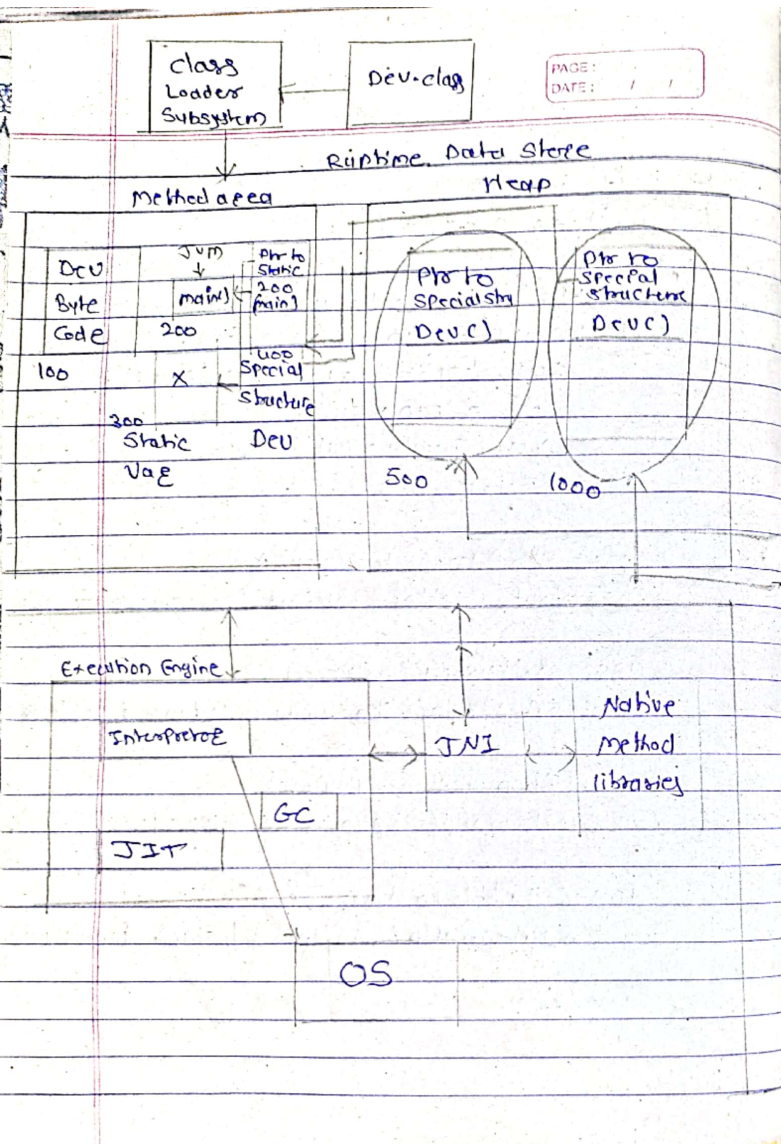 class
Loader
Subsystem
Dev.class
PAGE:
DATE: / /
Runtime Data Store
Method area
Heap
Dev
Byte
Code
100
JVM
main()
200
Ptr to
Static
200
main()
X
300
Static
Var
400
Special
structure
Dev
Ptr to
Special str
Dev()
500
Ptr to
Special
structure
Dev()
1000
Execution Engine
Interpretor
GC
JIT
JNI
Native
Method
libraries
OS